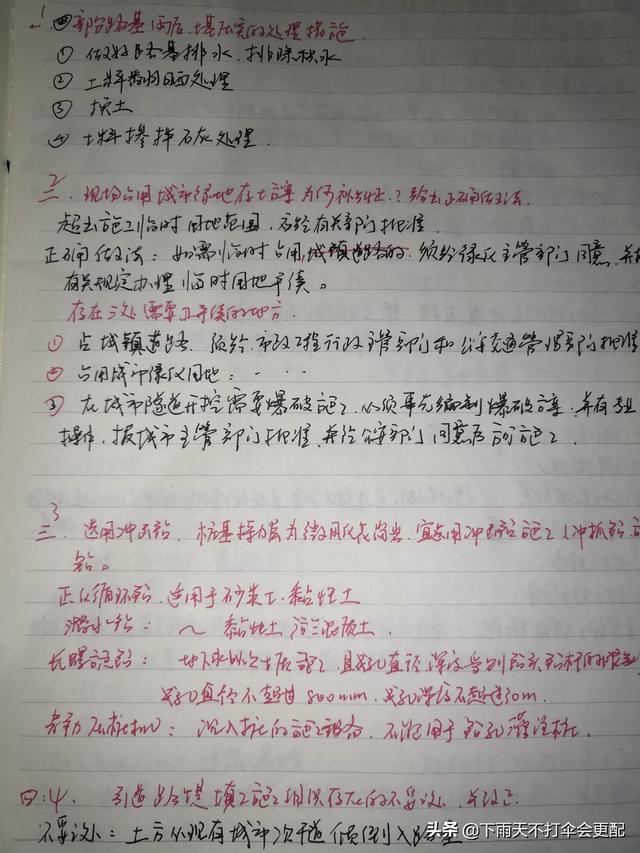 1 四 部分路基雨后,填压实的处理措施.
① 做好路基排水,排除积水
② 土料翻晒处理
③ 换土
④ 土料掺拌石灰处理.
2 二、现场占用城市绿地存土方案为何不妥?给出正确做法.
超出施工临时用地范围,应经有关部门批准.
正确做法:如需临时占用,城镇道路的.须经绿化主管部门同意,并按
有关规定办理临时用地手续。
存在三处需要办手续的地方.
① 占城镇道路.须经市政工程行政主管部门和公安交通管理部门批准
② 占用城市绿化用地:- - -
③ 在城市隧道开挖需要爆破施工,必须事先编制爆破方案,并有专业
操作,报城市主管部门批准,并经公安部门同意后方可施工.
3 三、选用冲击钻,桩基持力层为微风化岩,宜选用冲击钻施工(冲抓钻
钻。
正反循环钻,适用于砂类土、黏性土
潜水钻:~ 黏性土 淤泥质土.
长螺旋钻:地下水位以上土层施工,且成孔直径、深度受到
成孔直径不超过800mm,成孔深度不超过30m.
静力压桩机:沉入桩的施工设备,不能用于钻孔灌注桩.
四:4、引道路堤填土施工组织存在的不妥之处,并改正.
不妥之处:土方从现有城市次干道倾倒入路基
头条 @下雨天不打伞会更配